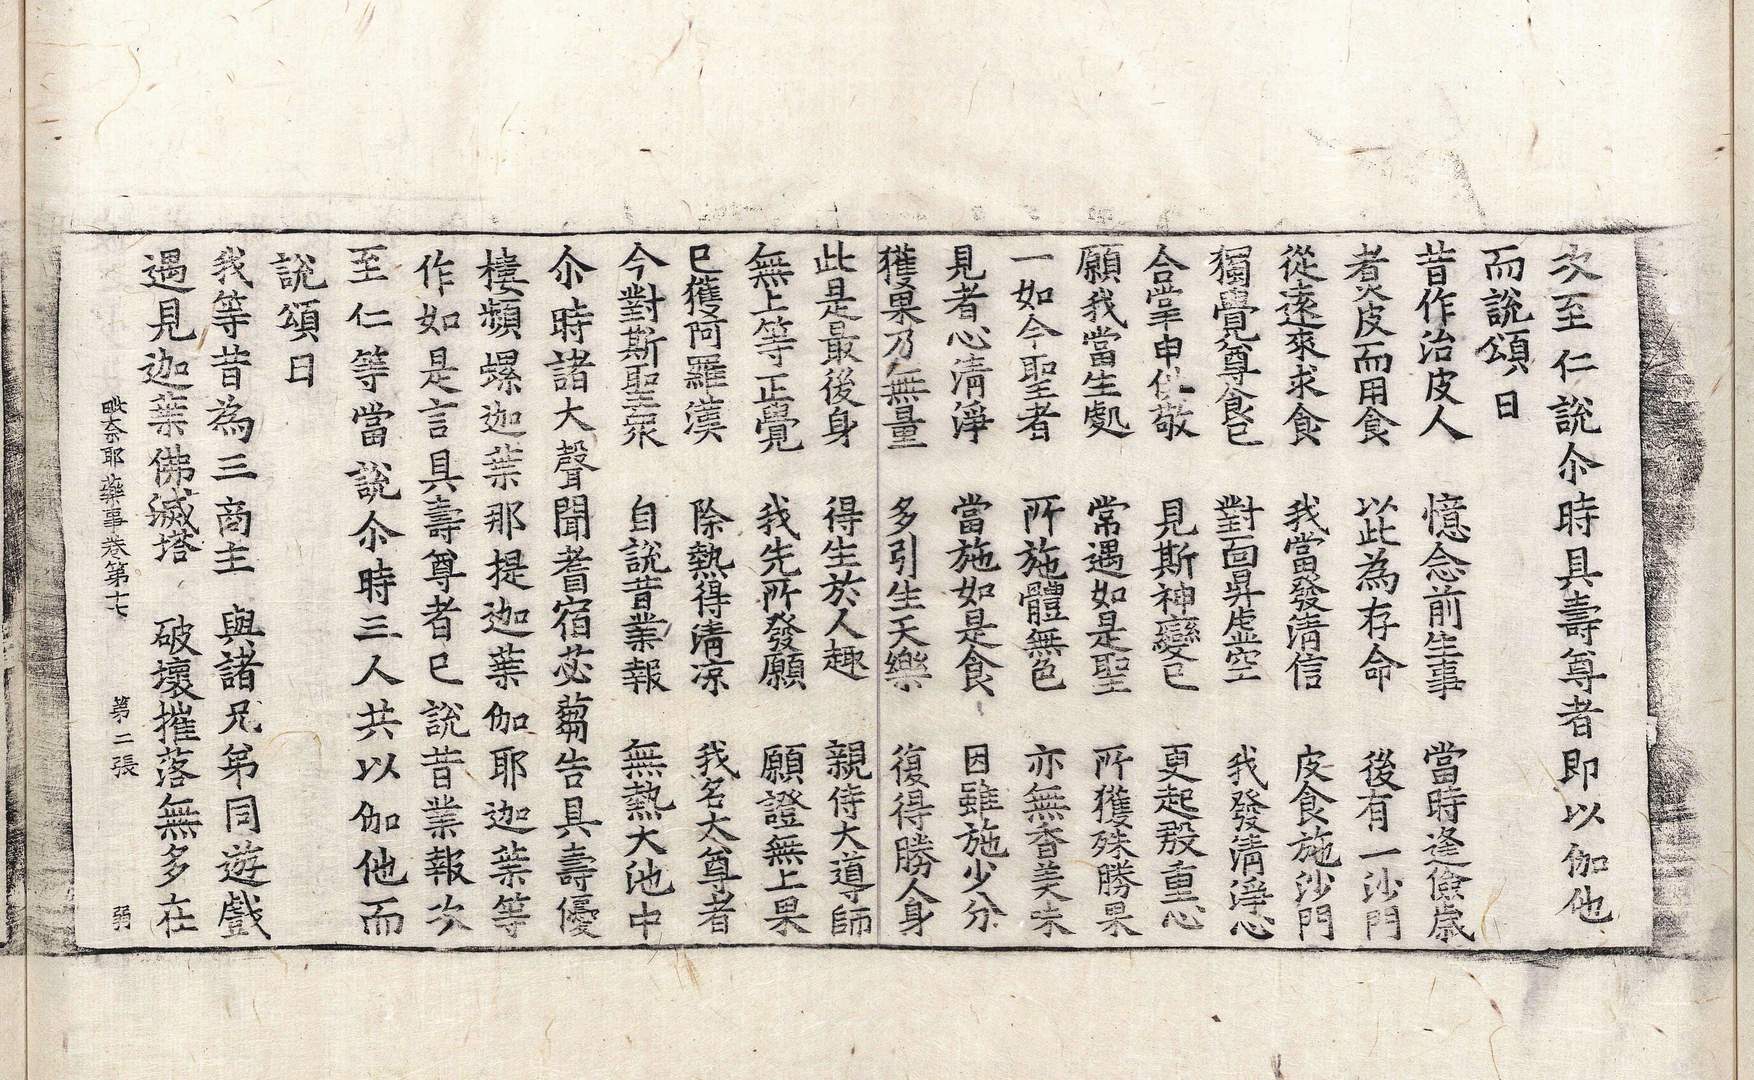 次至仁說尒時具壽尊者即以伽他
而說頌曰
昔作治皮人　憶念前生事　當時逢儉歲
煑皮而用食　以此為存命　後有一沙門
從遠來求食　我當發清信　皮食施沙門
獨覺尊食已　對面昇虛空　我發清淨心
合掌申供敬　見斯神變已　更起殷重心
願我當生處　常遇如是聖　所獲殊勝果
一如今聖者　所施體無色　亦無香美味
見者心清淨　當施如是食　因雖施少分
獲果乃無量　多引生天樂　復得勝人身
此是最後身　得生於人趣　親侍大導師
無上等正覺　我先所發願　願證無上果
已獲阿羅漢　除熱得清涼　我名大尊者
今對斯聖衆　自說昔業報　無熱大池中
尒時諸大聲聞耆宿苾蒭告具壽優
樓頻螺迦葉那提迦葉伽耶迦葉等
作如是言具壽尊者已說昔業報次
至仁等當說尒時三人共以伽他而
說頌曰
我等昔為三商主　與諸兄弟同遊戲
遇見迦葉佛滅塔　破壞摧落無多在
毗奈耶藥事卷第十七　第二張　弱